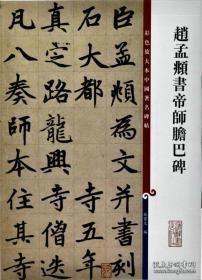 趙孟頫書帝師膽巴碑
彩色放大本中國著名碑帖
孫寶文 編
臣孟頫為并書刻
石大都寺五年
真定路龍興寺僧迭
凡八奏師本住其寺